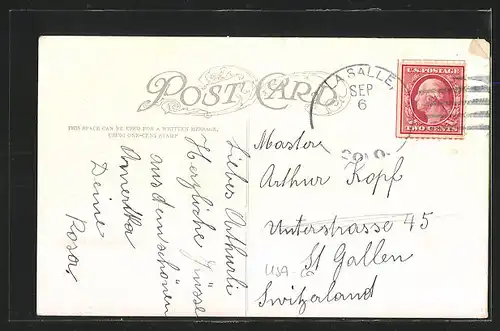 POST CARD
THIS SPACE CAN BE USED FOR A WRITTEN MESSAGE,
USING ONE-CENT STAMP
Lieber Arthurli
Herzliche Grüsse
aus dem schönen
Amerika
Deine
Rosa
LA SALLE,
SEP
6
COLO.
U.S. POSTAGE
TWO CENTS
Master
Arthur Kopf
Unterstrasse 45
St Gallen
Switzerland
USA